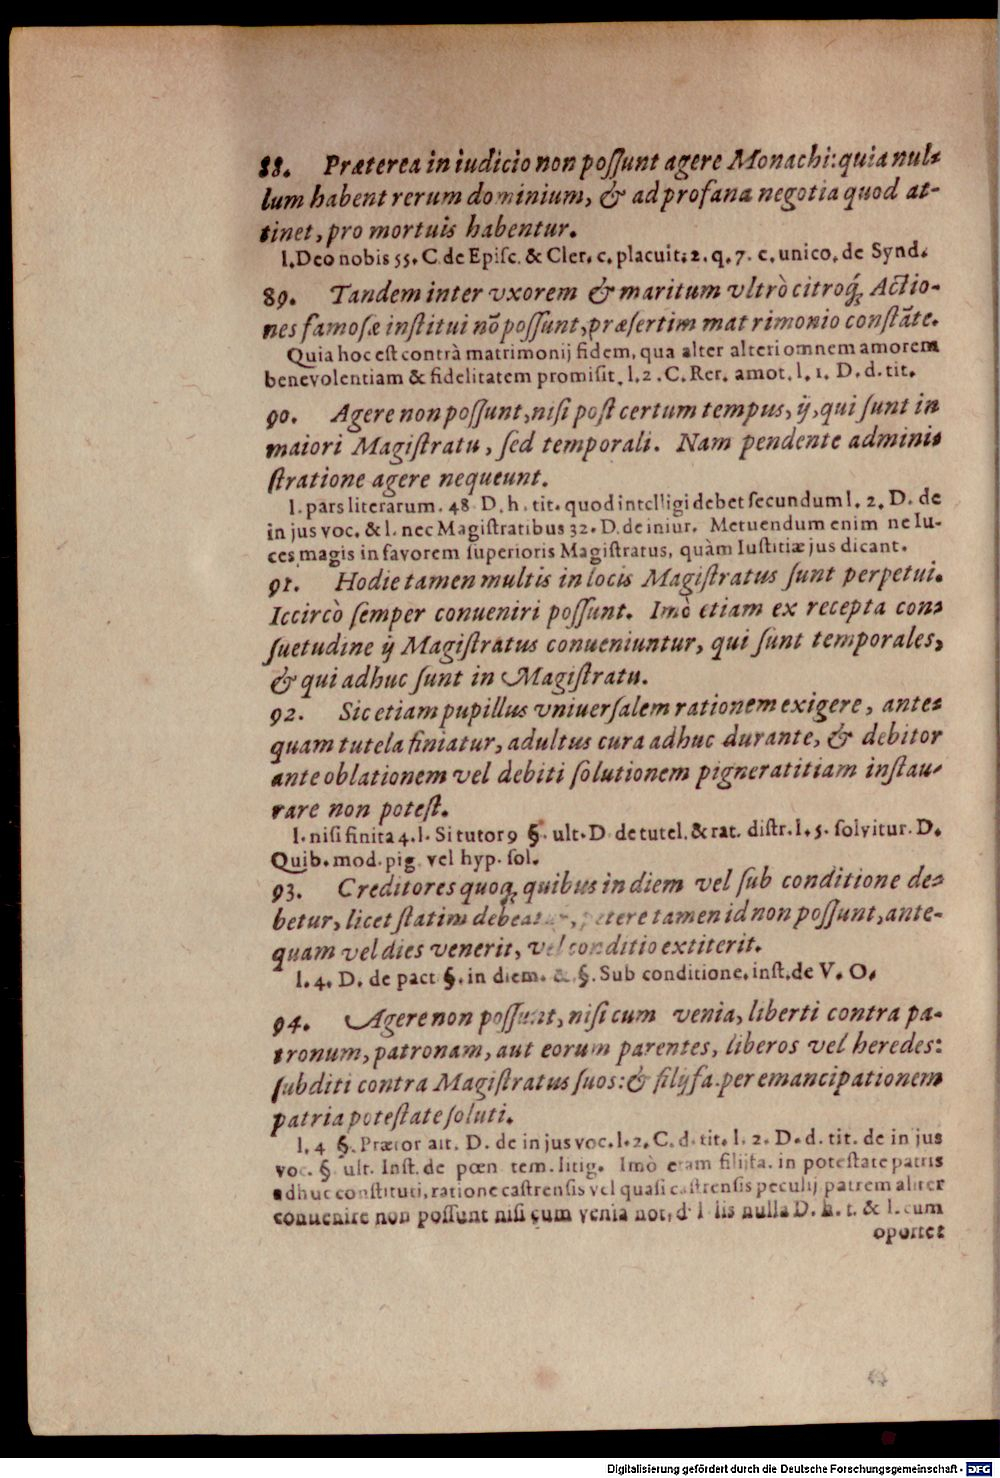 88. Præterea in iudicio non poſſunt agere Monachi: quia nul-
lum habent rerum dominium, & ad profana negotia quod at-
tinet, pro mortuis habentur.
l. Deo nobis 55. C. de Epiſc. & Cler. c. placuit. 2. q. 7. c. unico. de Synd.
89. Tandem inter vxorem & maritum vltrò citroq́ꝫ Actio-
nes famoſæ inſtitui nõ poſſunt, præſertim matrimonio conſtãte.
Quia hoc eſt contrà matrimonij fidem, qua alter alteri omnem amorem
benevolentiam & fidelitatem promiſit. l. 2. C. Rer. amot. l. 1. D. d. tit.
90. Agere non poſſunt, niſi poſt certum tempus, ij, qui ſunt in
maiori Magiſtratu, ſed temporali. Nam pendente admini-
ſtratione agere nequeunt.
l. pars literarum. 48. D. h. tit. quod intelligi debet ſecundum l. 2. D. de
in jus voc. & l. nec Magiſtratibus 32. D. de iniur. Metuendum enim ne Iu-
ces magis in favorem ſuperioris Magiſtratus, quàm Iuſtitiæ jus dicant.
91. Hodie tamen multis in locis Magiſtratus ſunt perpetui.
Iccircò ſemper conueniri poſſunt. Imò etiam ex recepta con-
ſuetudine ij Magiſtratus conueniuntur, qui ſunt temporales,
& qui adhuc ſunt in Magiſtratu.
92. Sic etiam pupillus vniuerſalem rationem exigere, ante-
quam tutela finiatur, adultus cura adhuc durante, & debitor
ante oblationem vel debiti ſolutionem pigneratitiam inſtau-
rare non poteſt.
l. niſi finita 4. l. Si tutor 9 §. ult. D. de tutel. & rat. diſtr. l. 5. ſolvitur. D.
Quib. mod. pig. vel hyp. ſol.
93. Creditores quoqꝫ quibus in diem vel ſub conditione de-
betur, licet ſtatim debeatur, petere tamen id non poſſunt, ante-
quam vel dies venerit, vel conditio extiterit.
l. 4. D. de pact §. in diem. & §. Sub conditione. inſt. de V. O.
94. Agere non poſſunt, niſi cum venia, liberti contra pa-
tronum, patronam, aut eorum parentes, liberos vel heredes:
ſubditi contra Magiſtratus ſuos: & filijfa. per emancipationem
patria poteſtate ſoluti.
l. 4 §. Prætor ait. D. de in jus voc. l. 2. C. d. tit. l. 2. D. d. tit. de in jus
voc. §. ult. Inſt. de pœn tem. litig. Imò etam filijfa. in poteſtate patris
adhuc conſtituti, ratione caſtrenſis vel quaſi caſtrenſis peculij patrem aliter
convenire non poſſunt niſi cum venia not. d. l lis nulla D. h. t. & l. cum
oportet
Digitalisierung gefördert durch die Deutsche Forschungsgemeinschaft - DFG